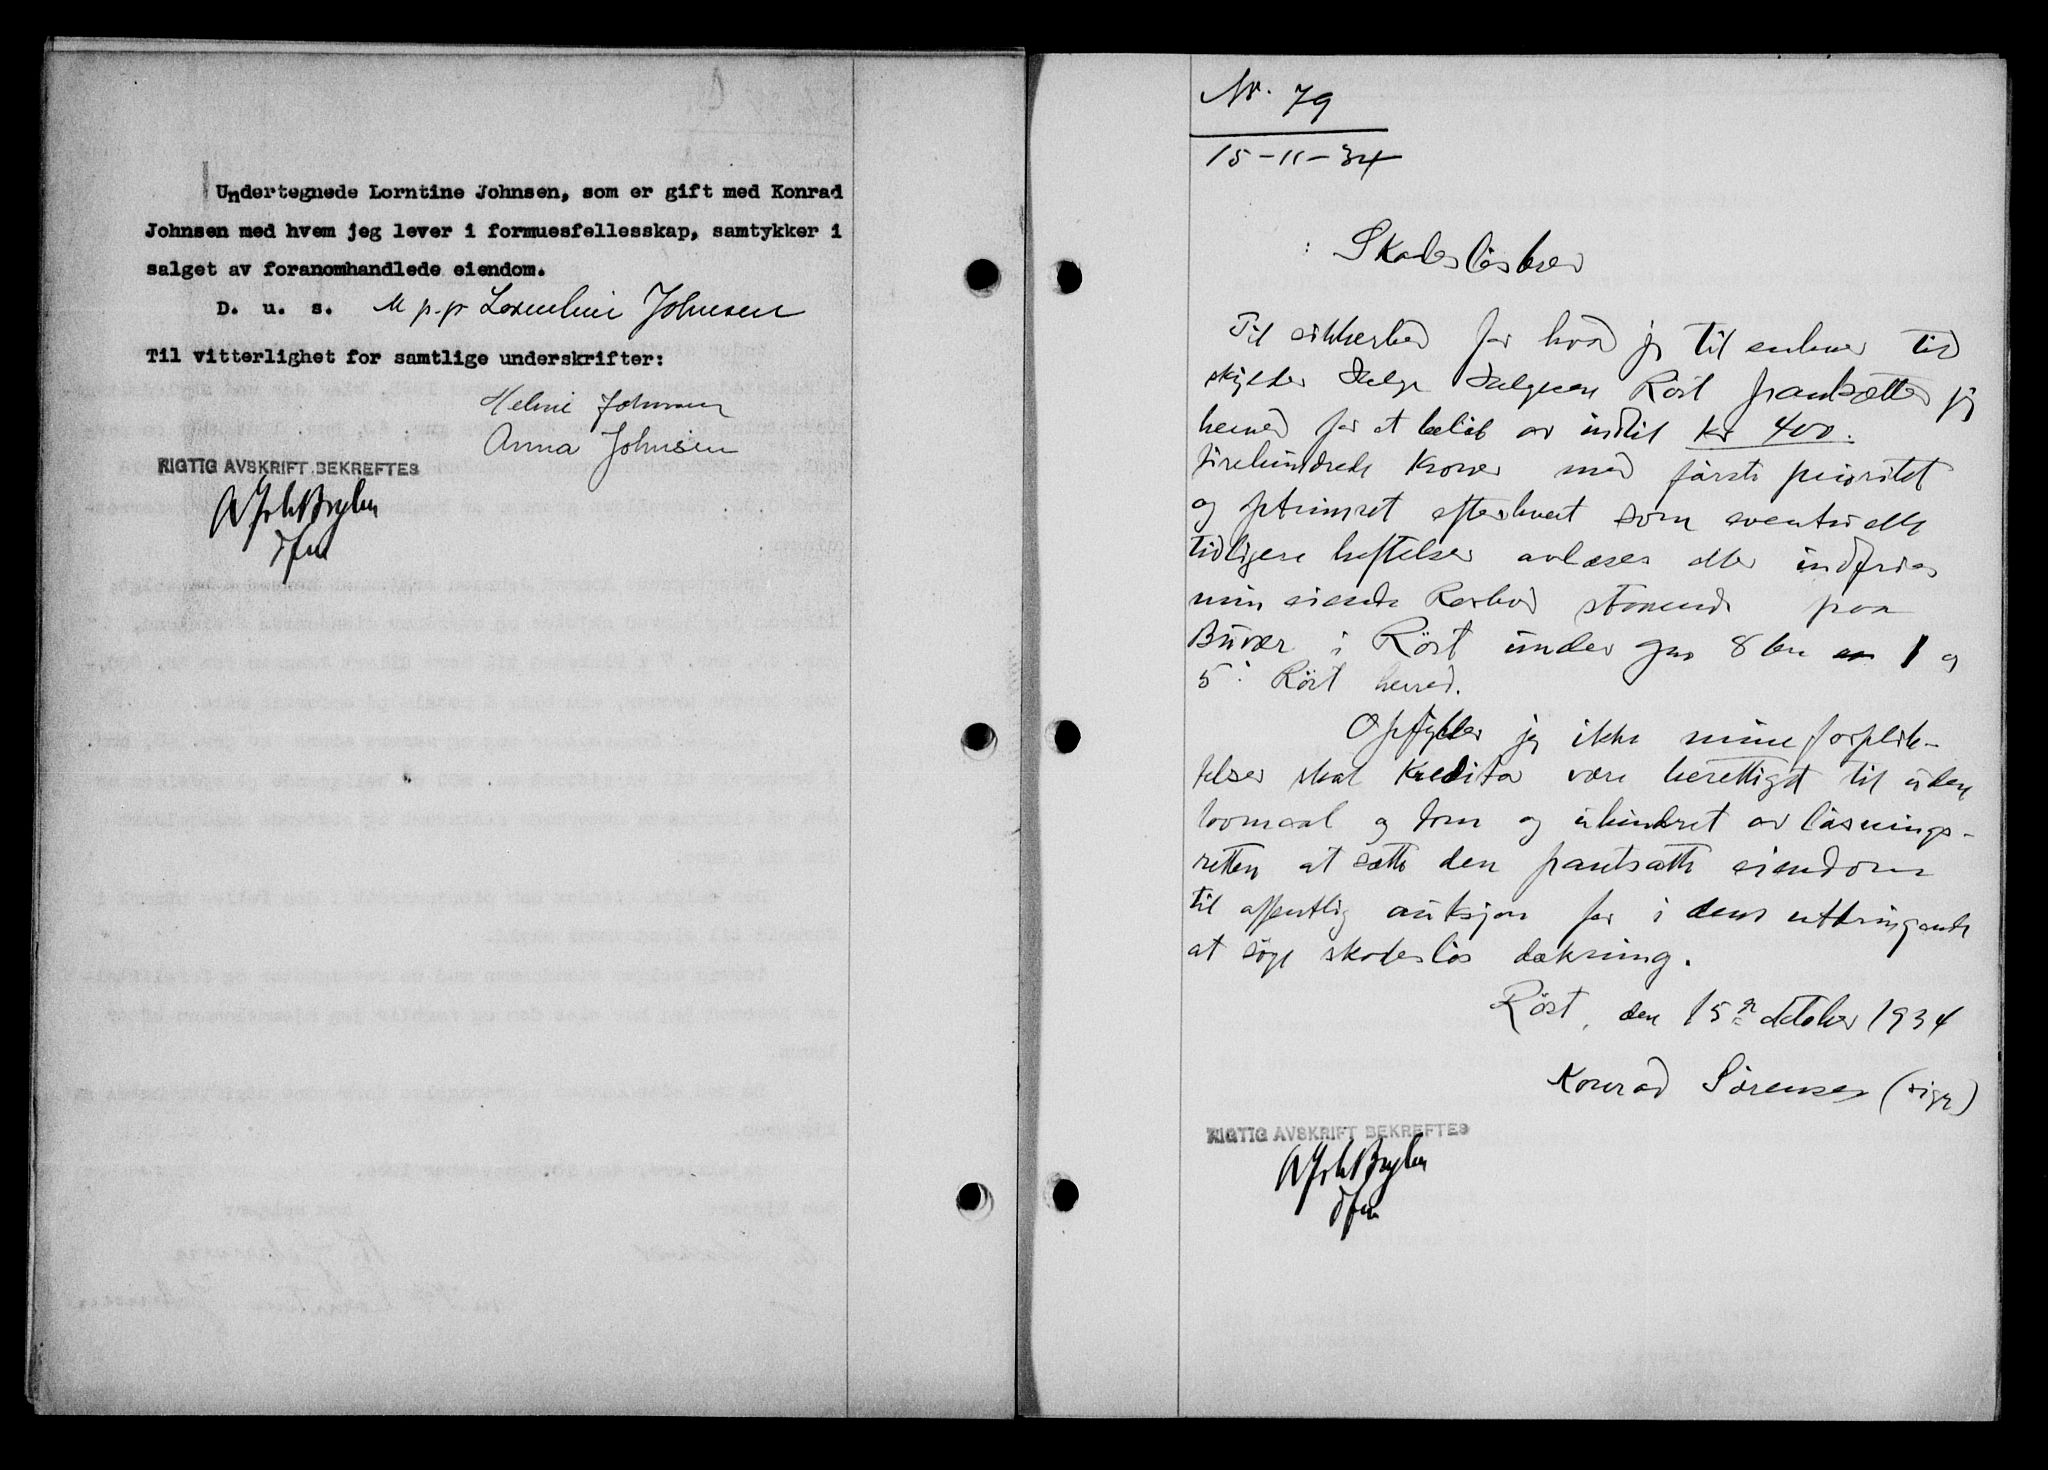 Undertegnede Lorntine Johnsen, som er gift med Konrad
Johnsen med hvem jeg lever i formuesfellesskap, samtykker i
salget av foranomhandlede eiendom.
D. u. s. M p.p Lorentine Johnsen
Til vitterlighet for samtlige underskrifter:
Helmi Johnsen
Anna Johnsen
RIGTIG AVSKRIFT BEKREFTES
Nr. 79
15-11-34
Skadesløsbrev
Til sikkerhed for hvad jeg til enhver tid
skylder Helge Helgesen Röst pantsætter jeg
herved for et beløb av indtil kr 400.
firehundrede kroner med første prioritet
og optrinsret efterhvert som eventuelle
tidligere heftelser avløses eller indfries
min eiende Rorbod staaende paa
Buvær i Röst under gno 8 bno 1 og
5 i Röst herred.
Opfylder jeg ikke mine forplik-
telser skal kreditor være berettiget til uden
lovmaal og dom og uhindret av løsnings-
retten at sætte den pantsatte eiendom
til offentlig auksjon for i dens utbringende
at søge skadesløs dækning.
Röst, den 15n oktober 1934
Konrad Sörensen (sign)
RIGTIG AVSKRIFT BEKREFTES